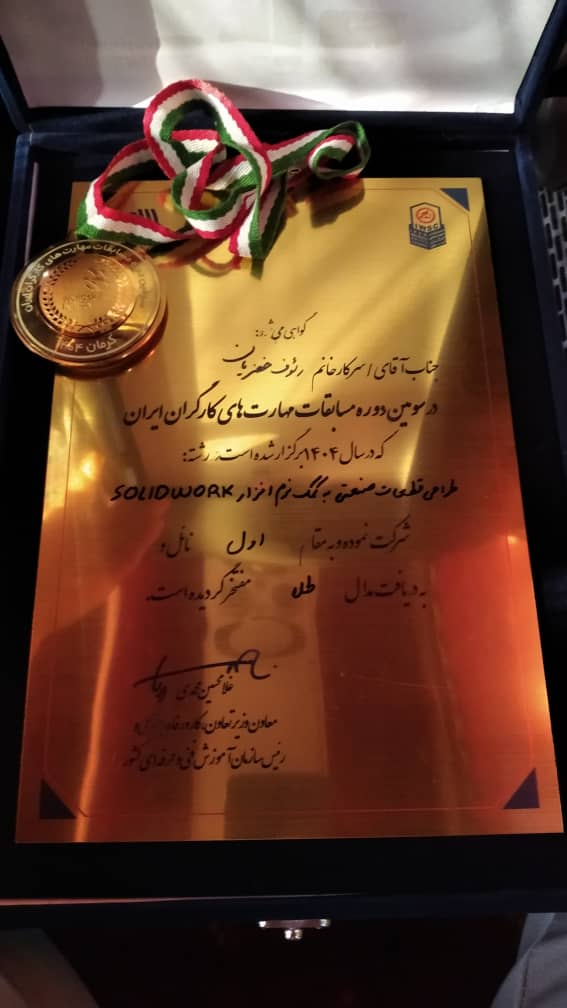 IWSC
مسابقات مهارت های کارگران ایران
کرمان ۱۴۰۴
گواهی می شود:
جناب آقای / سرکار خانم رئوف خضریان
در سومین دوره مسابقات مهارت های کارگران ایران
که در سال ۱۴۰۴ برگزار شده است، رشته:
طراحی قطعات صنعتی به کمک نرم افزار SOLIDWORK
شرکت نموده و به مقام اول نائل و
به دریافت مدال طلا مفتخر گردیده است.
غلامحسین محمدی
معاون وزیر تعاون، کار و رفاه اجتماعی و
رئیس سازمان آموزش فنی و حرفه ای کشور